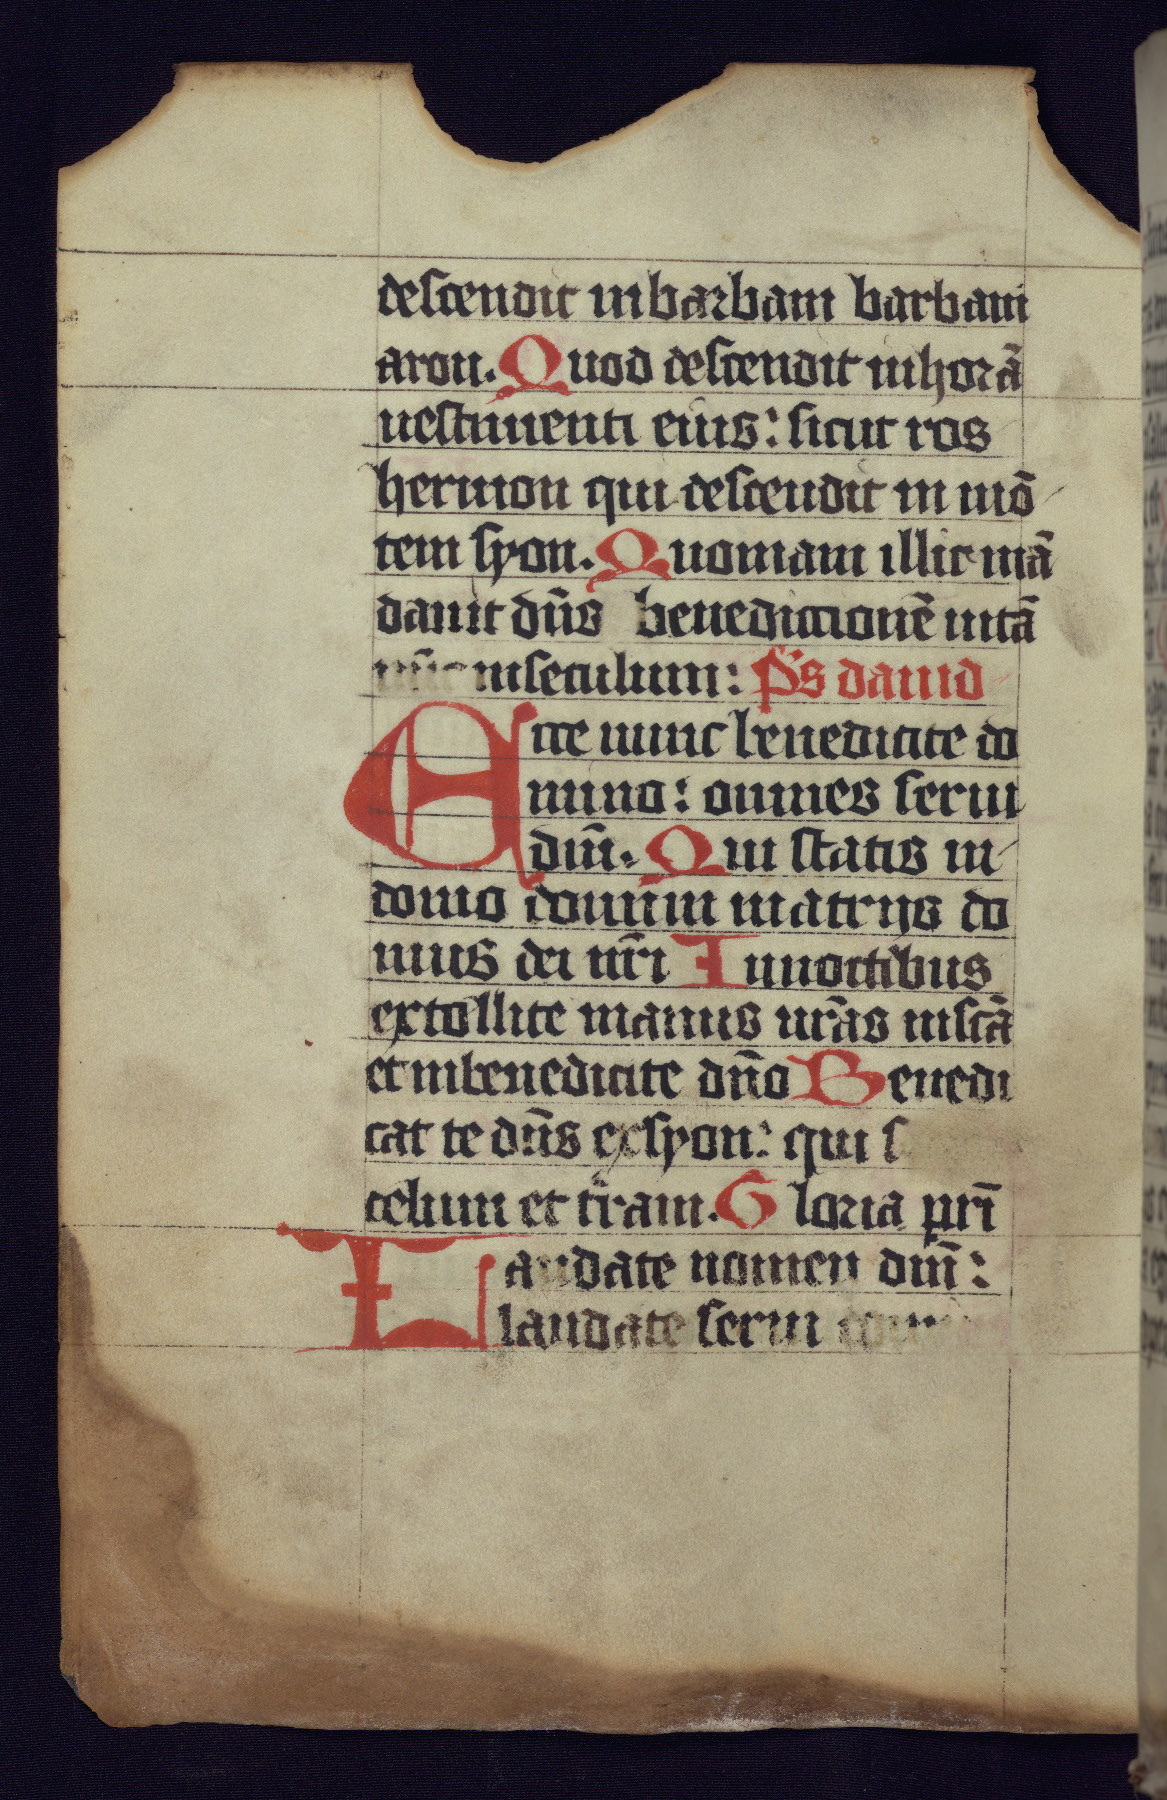 descendit in barbam barbam
aron. Quod descendit in horā
uestimenti eius: sicut ros
hermon qui descendit in mō
tem syon. Quoniam illic mā
dauit dn̄s benedictionē uitā
inseculum: P̄s dauid
Ecce nunc benedicite do
mino: omnes serui
dm̄i. Qui statis in
domo domini in atrijs do
mus dei nr̄i In noctibus
extollite manus ur̄as in scā
et in benedicite dn̄o Benedi
cat te dn̄s ex syon: qui
celum et t̄ram. Gloria pr̄i
Laudate nomen dm̄i:
laudate serui